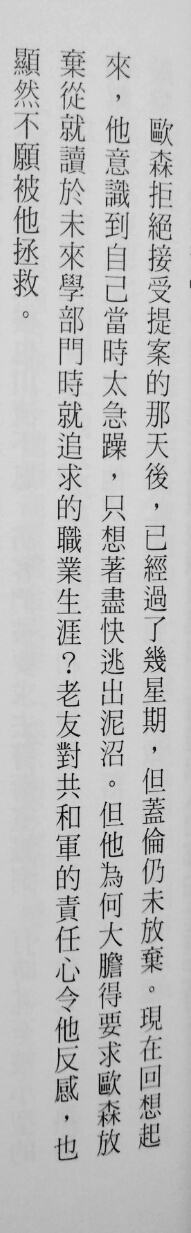 歐森拒絕接受提案的那天後，已經過了幾星期，但蓋倫仍未放棄。現在回想起
來，他意識到自己當時太急躁，只想著盡快逃出泥沼。但他為何大膽得要求歐森放
棄從就讀於未來學部門時就追求的職業生涯？老友對共和軍的責任心令他反感，也
顯然不願被他拯救。